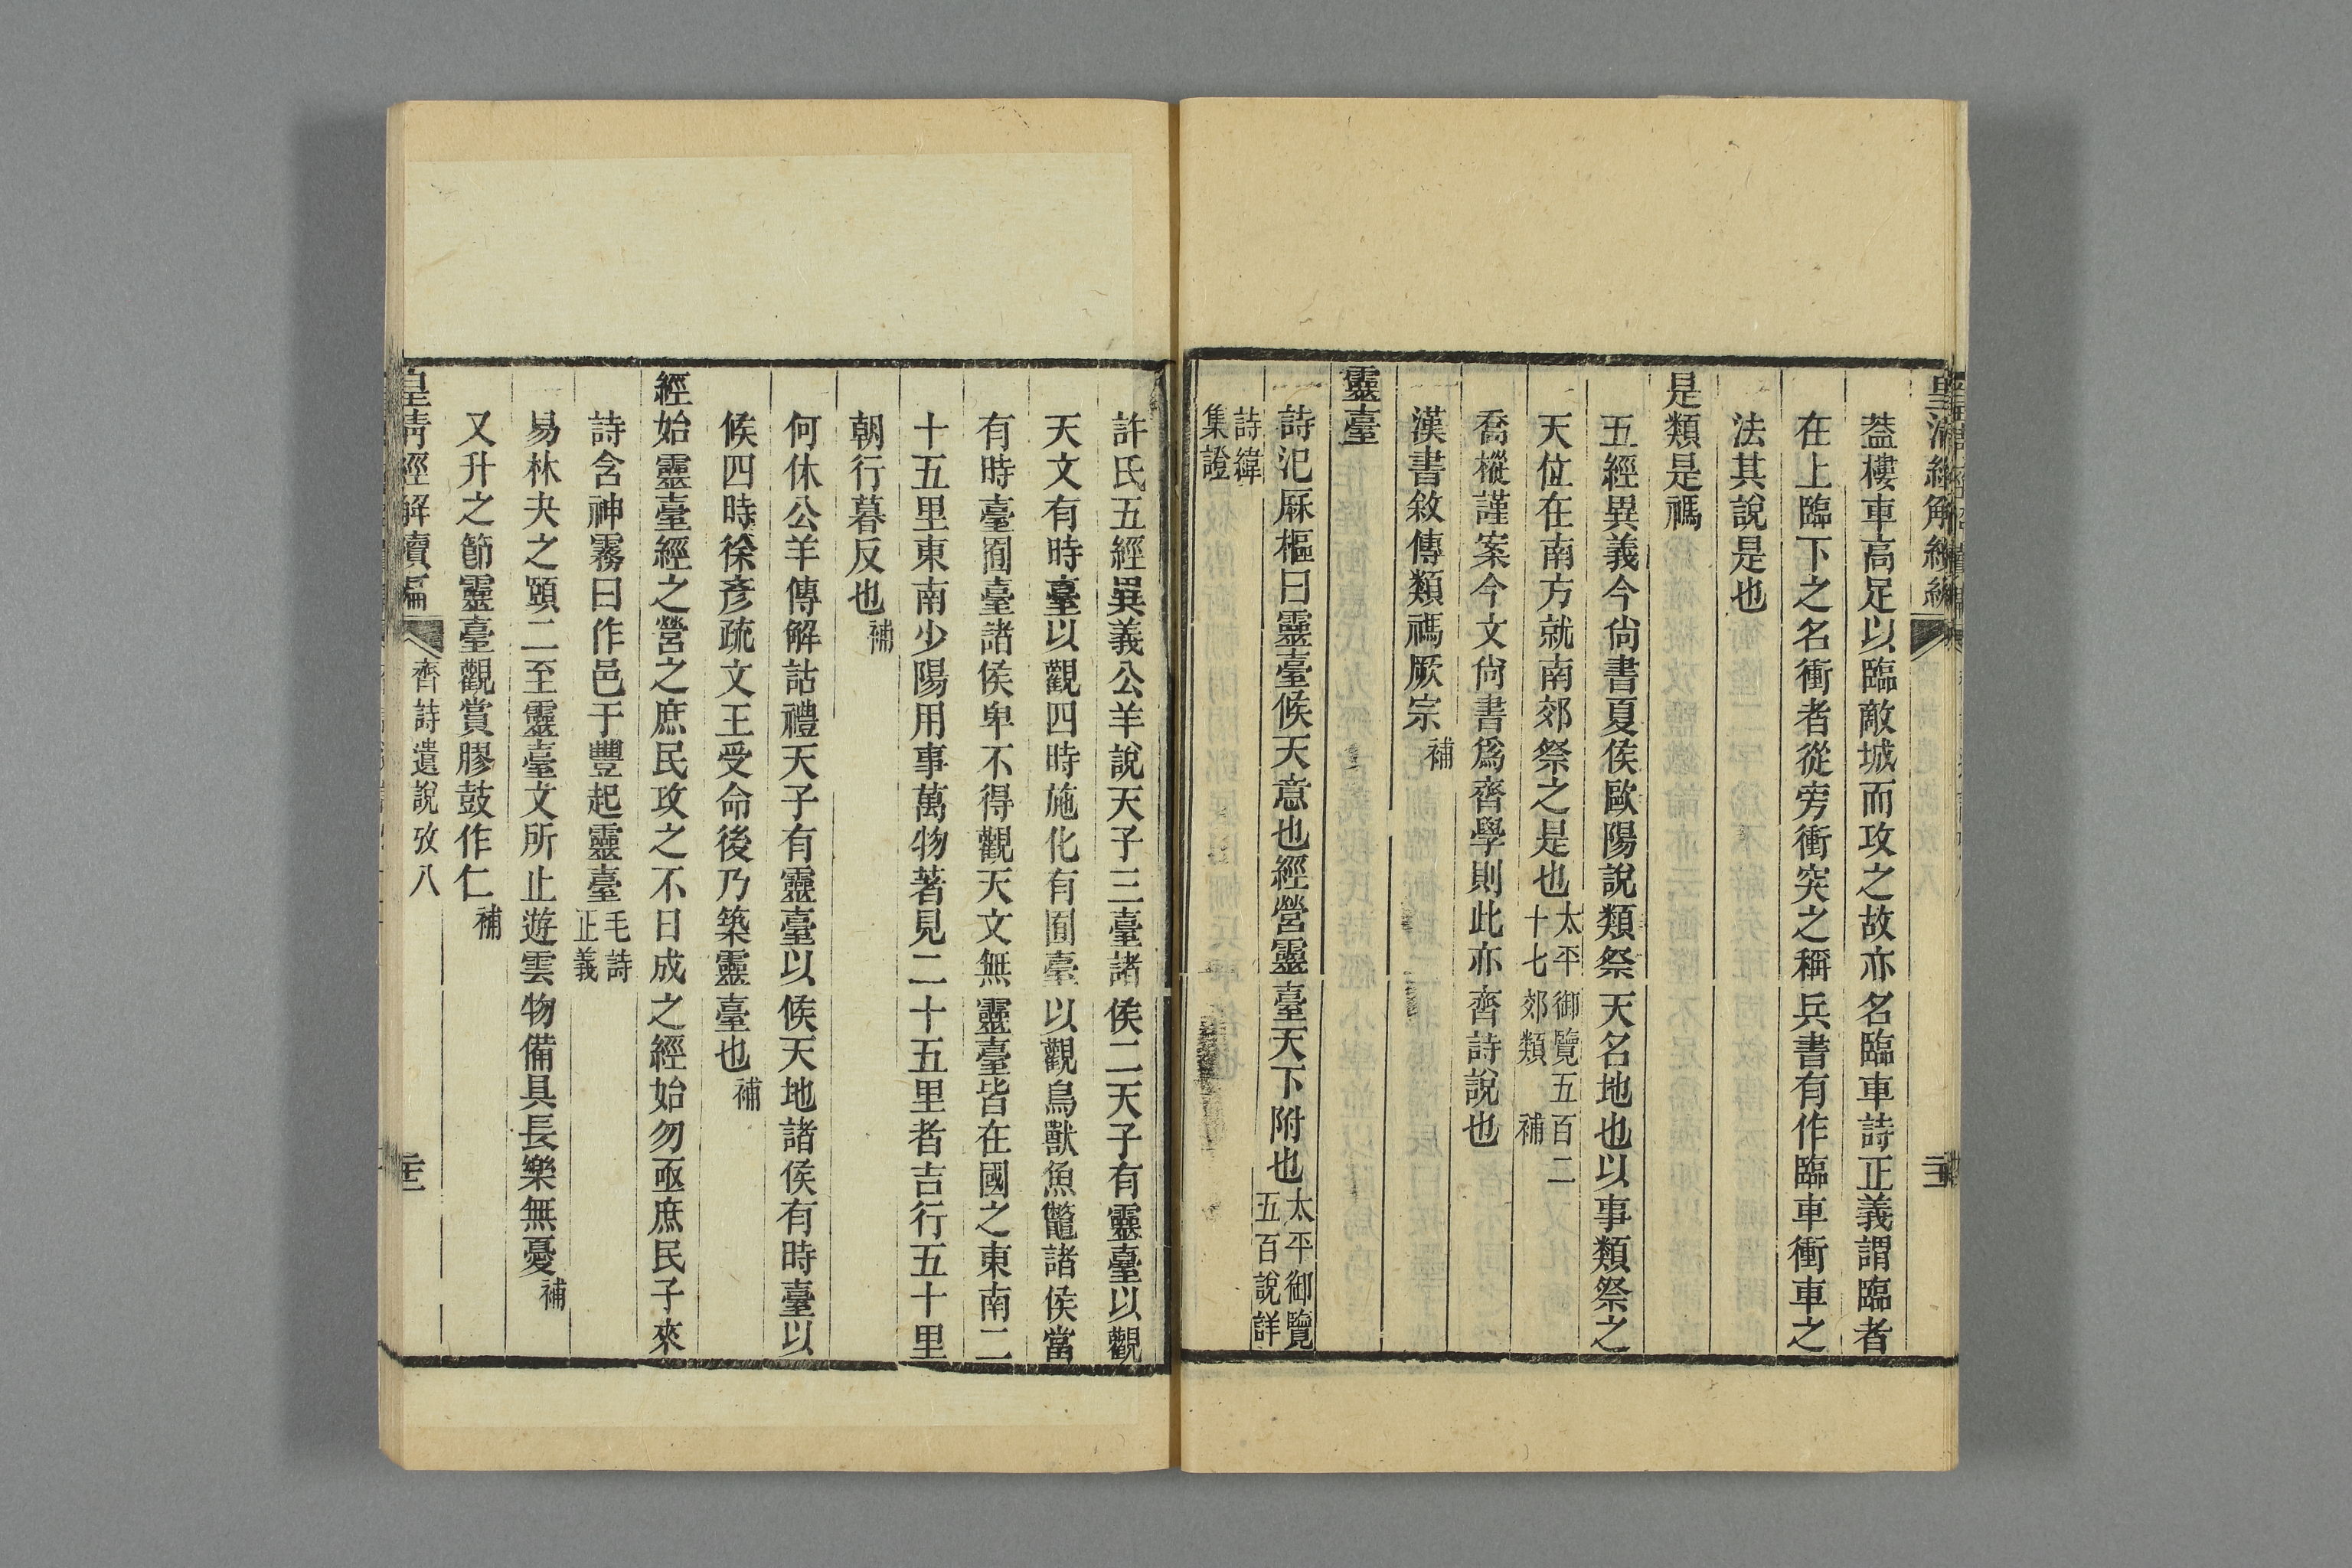 葢樓車高足以臨敵城而攻之故亦名臨車詩正義謂臨者
在上臨下之名衝者從旁衝突之稱兵書有作臨車衝車之
法其說是也
是類是禡
五經異義今尙書夏侯歐陽說類祭天名地也以事類祭之
天位在南方就南郊祭之是也太平御覽五百二十七郊類補
喬樅謹案今文尙書爲齊學則此亦齊詩說也
漢書敘傳類禡厥宗補
靈臺
詩氾厤樞曰靈臺候天意也經營靈臺天下附也太平御覽五百說詳
詩緯集證
許氏五經異義公羊說天子三臺諸侯二天子有靈臺以觀
天文有時臺以觀四時施化有囿臺以觀鳥獸魚鼈諸侯當
有時臺囿臺諸侯卑不得觀天文無靈臺皆在國之東南二
十五里東南少陽用事萬物著見二十五里者吉行五十里
朝行暮反也補
何休公羊傳解詁禮天子有靈臺以候天地諸侯有時臺以
候四時徐彥疏文王受命後乃築靈臺也補
經始靈臺經之營之庶民攻之不日成之經始勿亟庶民子來
詩含神霧曰作邑于豐起靈臺毛詩正義
易林夬之頤二至靈臺文所止遊雲物備具長樂無憂補
又升之節靈臺觀賞膠鼓作仁補
皇清經解續編 齊詩遺說攷八